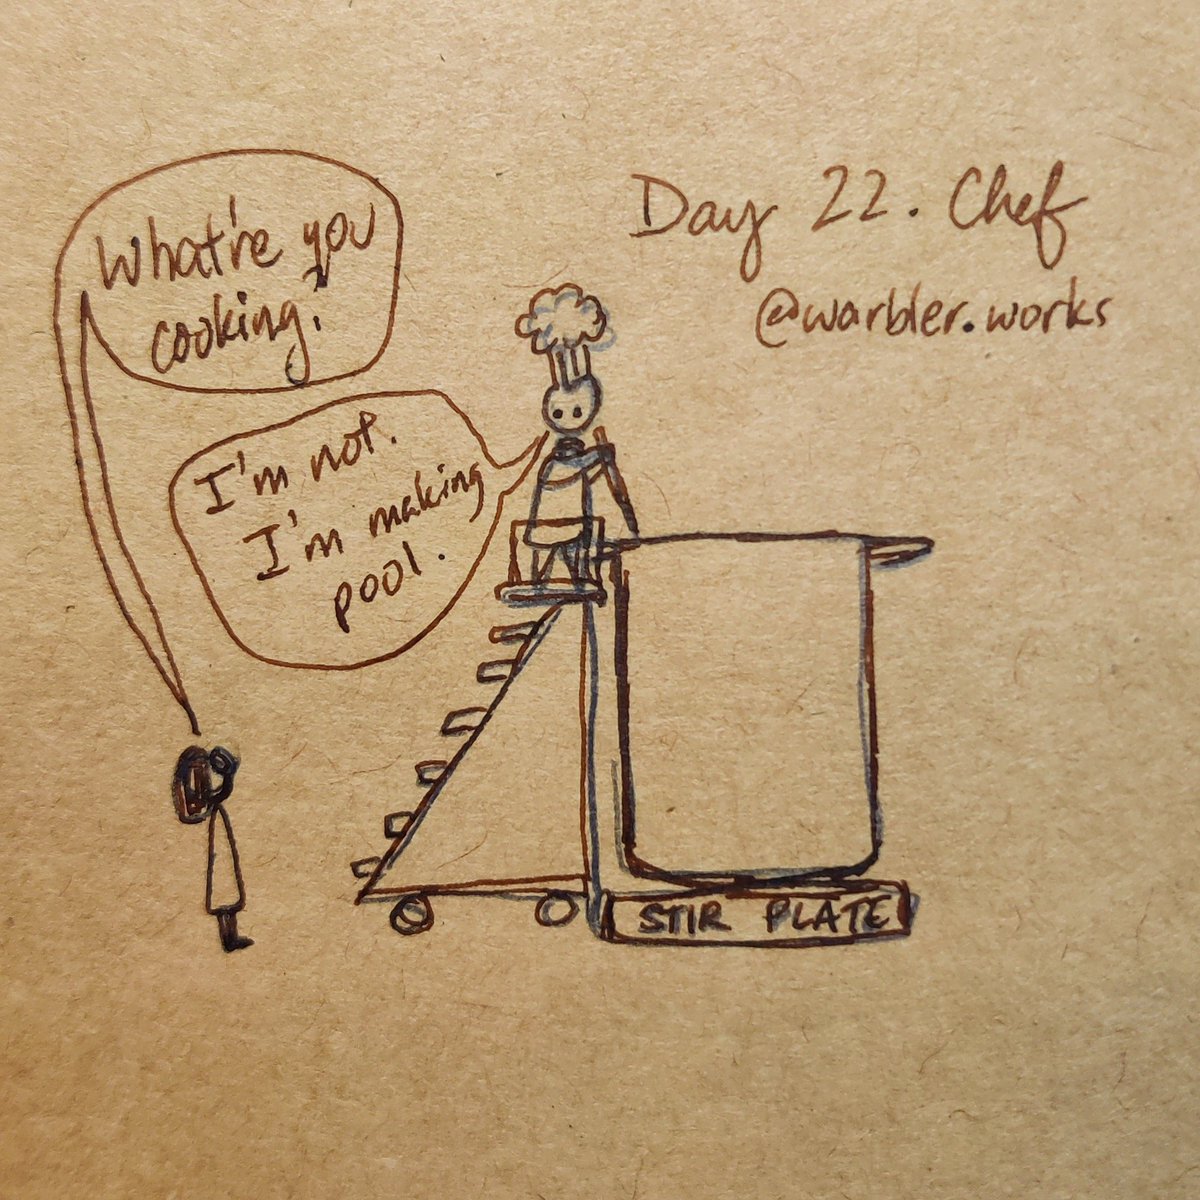 Day 22. Chef
@warbler.works
What're you
cooking?
I'm not.
I'm making
pool.
STIR PLATE